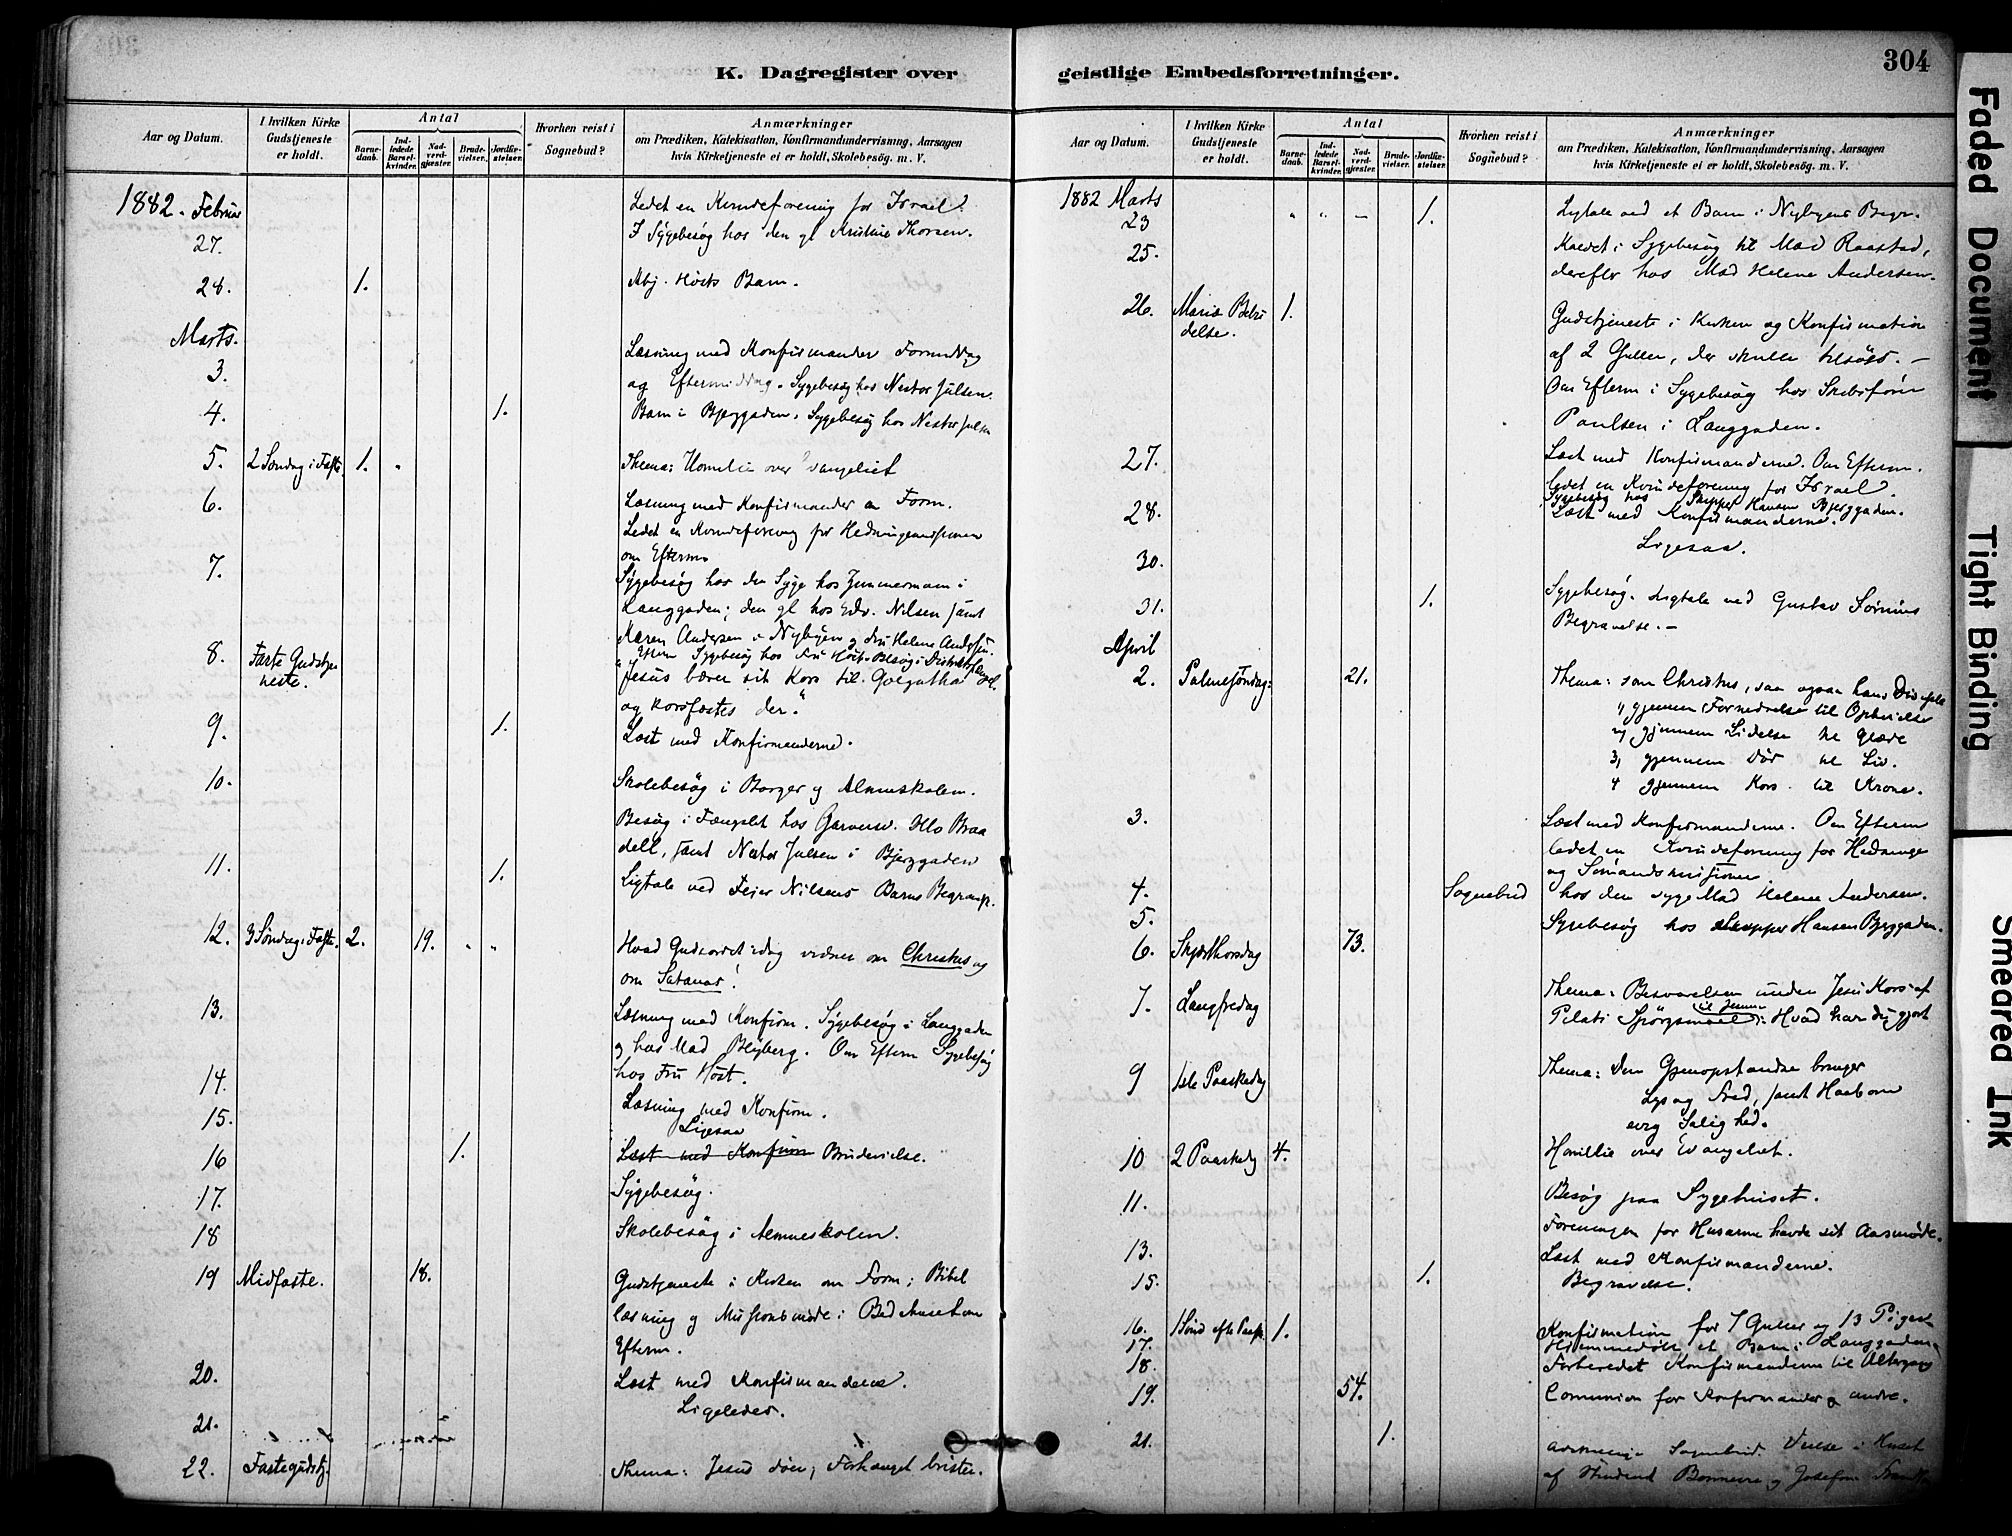 304
K. Dagregister over geistlige Embedsforretninger.
Aar og Datum.
I hvilken Kirke Gudstjeneste er holdt.
Antal
Barnedaab.
Indledede Barselkvinder.
Nadverdgjæster.
Brudevielser.
Jordfæstelser.
Hvorhen reist i Sognebud?
Anmærkninger
om Prædiken, Katekisation, Konfirmandundervisning, Aarsagen
hvis Kirketjeneste ei er holdt, Skolebesøg. m. V.
1882. Februar
Ledet en Kvindeforening for Israel.
27.
I Sÿgebesøg hos den gl Thorsen.
28. 1. Høsts Barn.
Marts.
3. Læsning med Konfirmander Formiddag
og Eftermiddag. Sygebesøg hos Julsen.
4. 1. Barn i Bjerggaden. Sygebesøg hos
5. 2 Søndag i Faste. 1. Thema: Homilie over Evangeliet
6. Læsning med Konfirmander Form.
Ledet en Kvindeforening for
om Efterm
7. Sÿgebesøg hos den Syge hos Zimmermann i
Langgaden; den gl hos Edv. Nilsen samt
Maren Andersen i Nybyen
8. Faste Gudstje
neste.
Efterm Sygebesøg hos Fru Høst. Besøg i
Jesus bærer sit Kors til Golgatha
og korsfæstes der."
9. 1. Læst med Konfirmanderne.
10. Skolebesøg i Borger og Almueskolen.
Besøg i Fængslet hos
dell, samt Julsen i Bjerggaden
11. 1. Ligtale ved Feier Nilsens Barns
12. 3 Søndag i Faste. 2. 19. Hvad Gudsordet idag vidner om Christus og
om Satanas!
13. Læsning med Konfirm. Sÿgebesøg i Langgaden
og hos Mad Blÿberg. Om Efterm Sygebesøg
14. hos Frü Høst.
Læsning med Konfirm.
15. Ligesaa
16 1. Læst med Konfirm Brudevielse.
17. Sÿgebesøg.
18 Skolebesøg i Almueskolen.
19 Midfaste. 18. Gudstjeneste i Kirken om Form; Bibel
læsning og Missionsmøde i Bedehuset om
Efterm.
20. Læst med Konfirmanderne.
21. Ligeledes.
22. Fastegudstj. Thema: Jesus døer; Forhænget brister.
Aar og Datum.
I hvilken Kirke Gudstjeneste er holdt.
Antal
Barnedaab.
Indledede Barselkvinder.
Nadverdgjæster.
Brudevielser.
Jordfæstelser.
Hvorhen reist i Sognebud?
Anmærkninger
om Prædiken, Katekisation, Konfirmandundervisning, Aarsagen
hvis Kirketjeneste ei er holdt, Skolebesøg. m. V.
1882 Marts
23 1. Ligtale ved et Barn i Nybyens Begr.
25. Kaldet i Sygebesøg til Mad Raastad,
derefter hos Mad Helene Andersen.
26. Mariæ Bebu
delse. 1. Gudstjeneste i Kirken og Konfirmation
af 2 Gutter, der skulle tilsøes. –
Om Efterm i Sygebesøg hos
Paulsen i Langgaden.
27. Læst med Konfirmanderne. Om Efterm.
ledet en Kvindeforening for Israel.
Sygebesøg hos Skipper Hansen Bjerggaden.
28. Læst med Konfirmanderne.
30. Ligesaa.
31. 1. Sygebesøg. Ligtale ved Gustav
Begravelse. –
April
2. Palmesøndag: 21. Thema: som Christus, saa ogsaa hans Disciple
1, gjennem Fornedrelse til Ophøielse
2, gjennem Lidelse til Glæde
3, gjennem Død til Liv.
4 gjennem Kors til Krone.
3. Læst med Konfirmanderne. Om Efterm
ledet en Kvindeforening for Hedninge
og Sømandsmissionen
4. Sognebud hos den syge Mad Helene Andersen.
5. Sygebesøg hos Skipper Hansen Bjerggaden.
6. Skjærthorsdag 73.
7. Langfredag Thema: Besvarelsen under Jesu Kors af
Pilati Spørgsmaal til Jesum: Hvad har du gjort
9 1ste Paaskedag Thema: Den Gjenopstandne bringer
Lys og Fred, samt Haab om
evig Salighed.
10 2 Paaskedag 4. Homilie over Evangeliet.
11. Besøg paa Sygehuset.
Foreningen for Husarme havde sit Aarsmøde.
13. Læst med Konfirmanderne.
15. 1. Begravelse.
16. 1 Sønd efter Paaske. 1. Konfirmation for 7 Gutter og 13 Piger.
17. Hjemmedøbt et Barn i Langgaden.
18. Forberedet Konfirmanderne til Altergang
19. 54. Communion for Konfirmander og andre.
21. 1. Sognebud. Vielse i Huset
af
Faded Document
Tight Binding
Smeared Ink